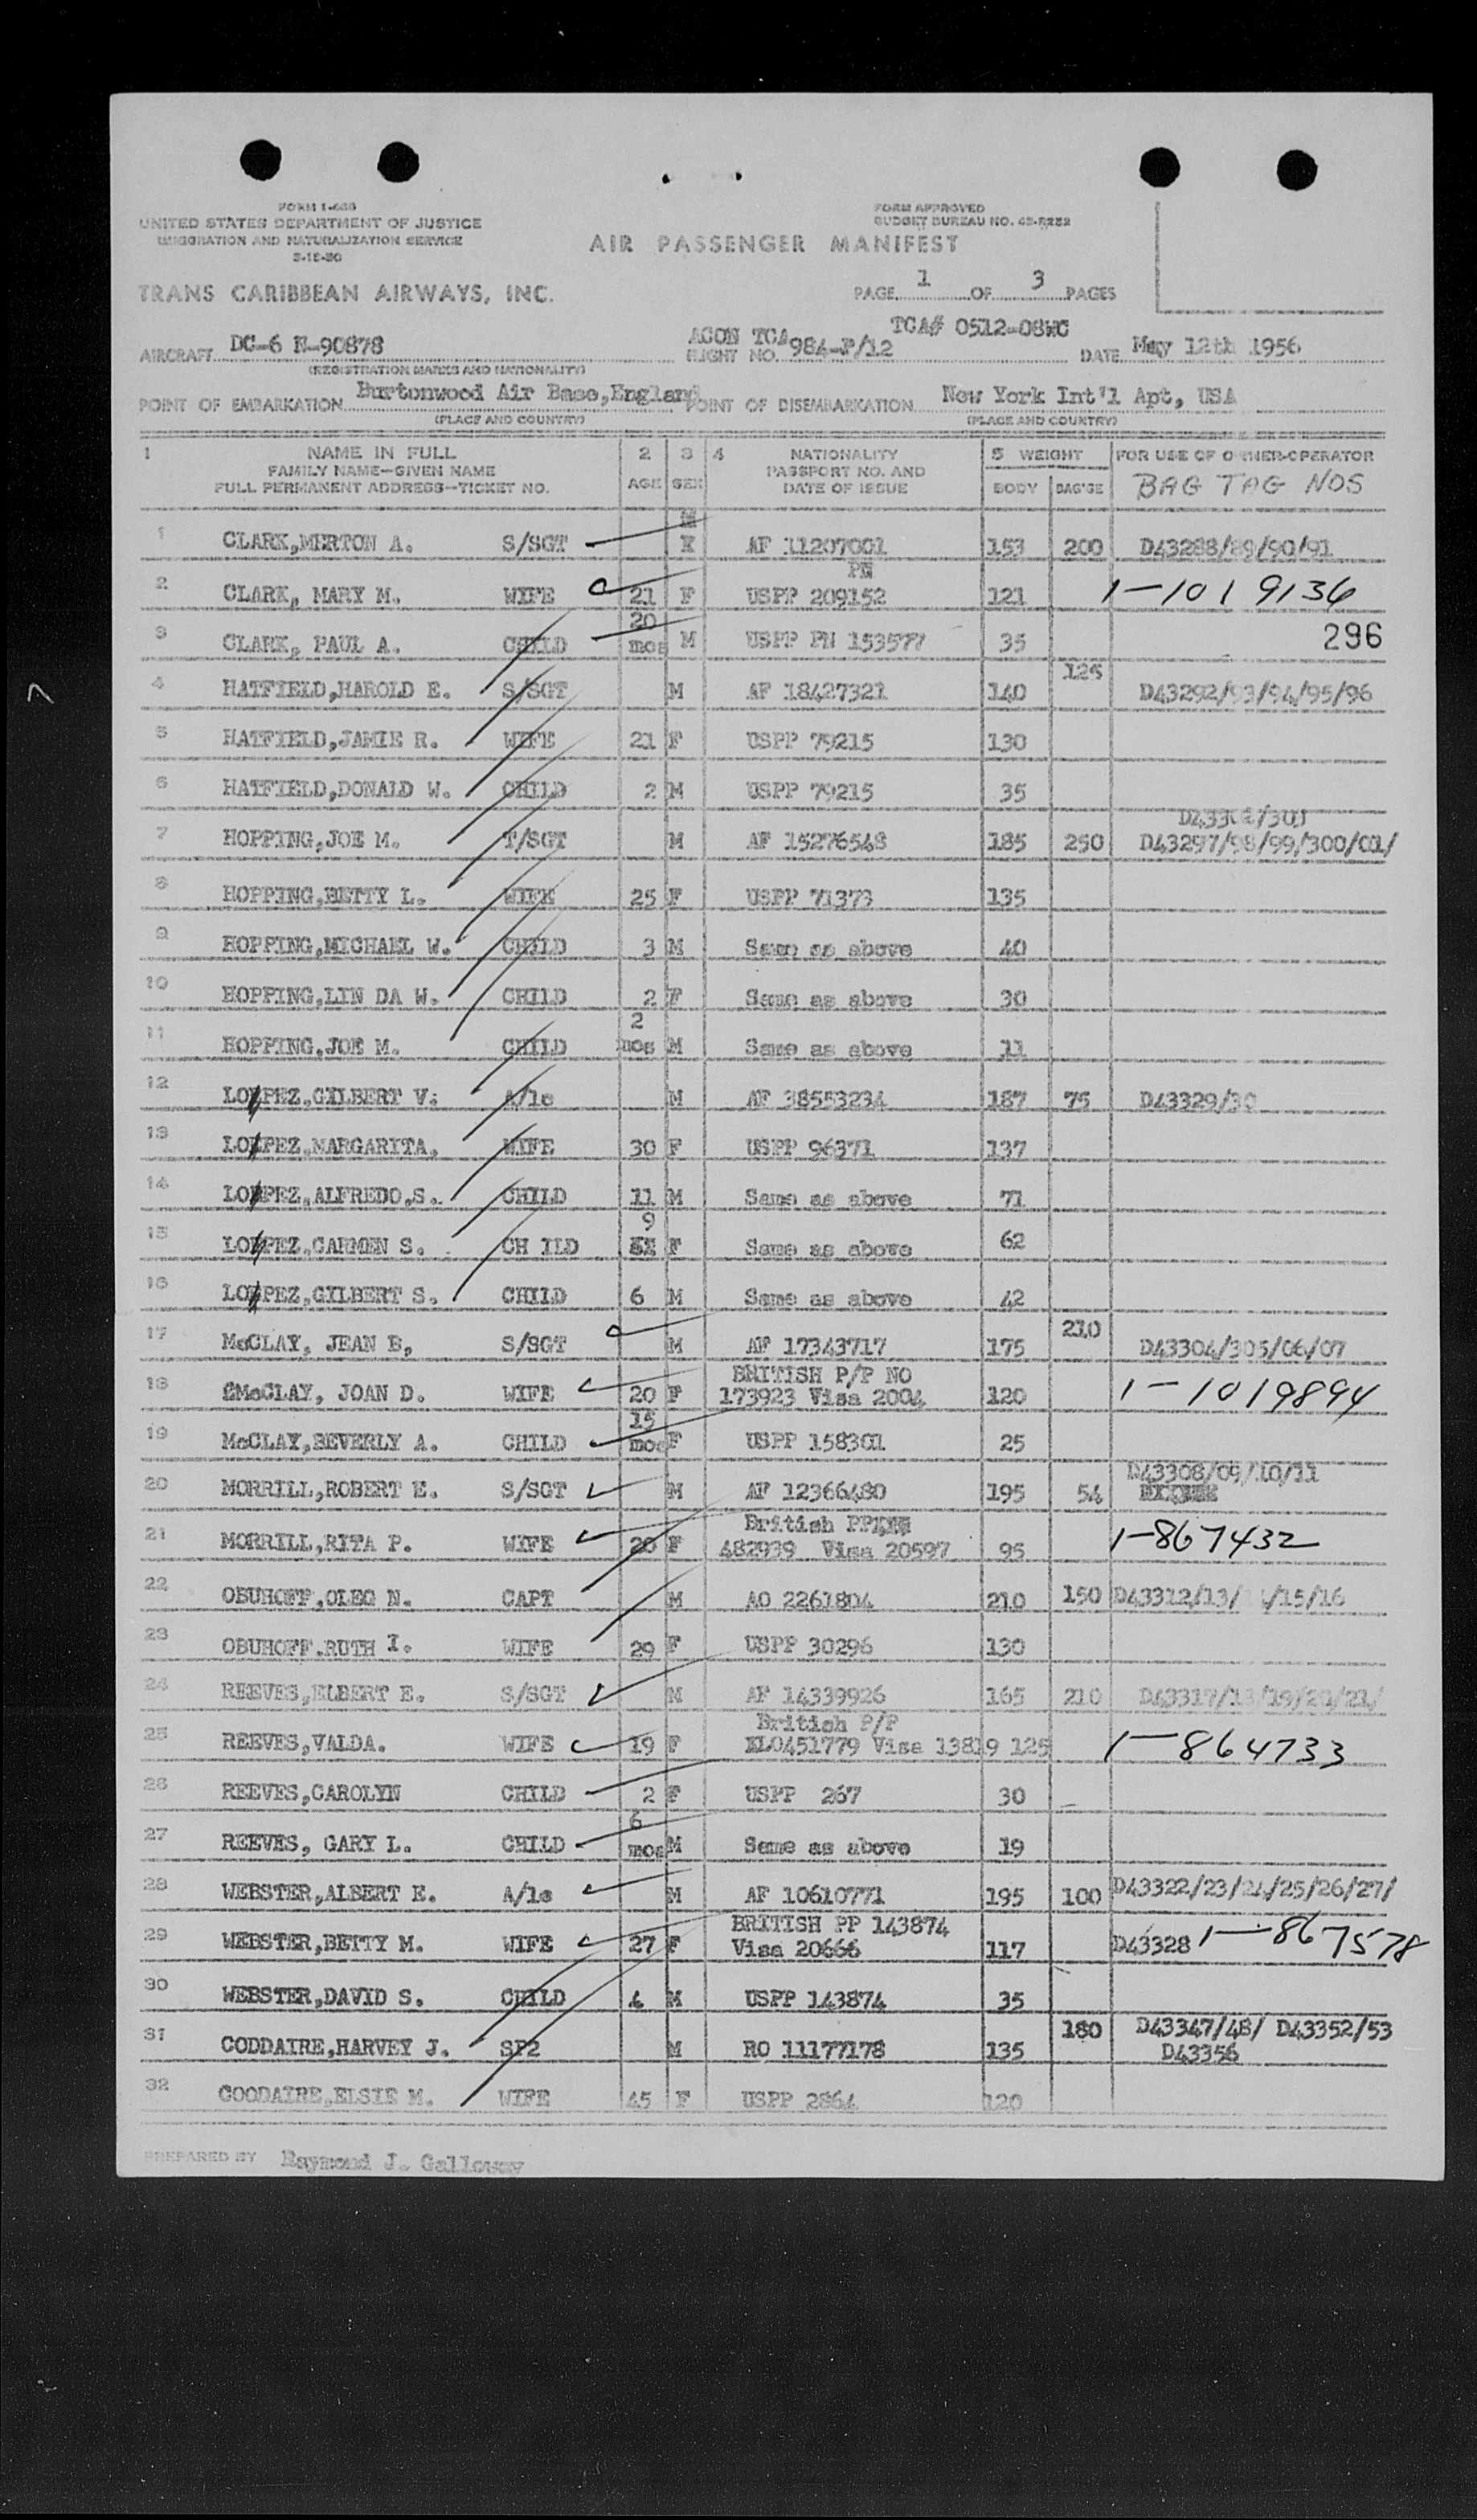 FORM I-466
UNITED STATES DEPARTMENT OF JUSTICE
IMMIGRATION AND NATURALIZATION SERVICE
FORM APPROVED
BUDGET BUREAU NO. 43-R252
AIR PASSENGER MANIFEST
TRANS CARIBBEAN AIRWAYS, INC.
PAGE 1 OF 3 PAGES
TCA# 0512-08WC
AIRCRAFT DC-6 N-90878 ACON TCA FLIGHT NO. 984-P/12 DATE May 12th 1956
(REGISTRATION MARKS AND NATIONALITY)
POINT OF EMBARKATION Burtonwood Air Base,England POINT OF DISEMBARKATION New York Int'l Apt, USA
(PLACE AND COUNTRY) (PLACE AND COUNTRY)
1 NAME IN FULL 2 3 4 NATIONALITY 5 WEIGHT FOR USE OF OWNER-OPERATOR
FAMILY NAME—GIVEN NAME PASSPORT NO. AND
FULL PERMANENT ADDRESS—TICKET NO. AGE SEX DATE OF ISSUE BODY BAG'GE BAG TAG NOS
1 CLARK,MERTON A. S/SGT AF 11207001 153 200 D43288/89/90/91
PN
2 CLARK, MARY M. WIFE 21 F USPP 209152 121 1-1019136
20
3 CLARK, PAUL A. CHILD mos M USPP PN 153577 35 296
125
4 HATFIELD,HAROLD E. S/SGT M AF 18427321 140 D43292/93/94/95/96
5 HATFIELD,JAMIE R. WIFE 21 F USPP 79215 130
6 HATFIELD,DONALD W. CHILD 2 M USPP 79215 35
7 HOPPING,JOE M. T/SGT M AF 15276548 185 250 D43297/98/99/300/01/
8 HOPPING,BETTY L. WIFE 25 F USPP 71373 135
9 HOPPING,MICHAEL W. CHILD 3 M Same as above 40
10 HOPPING,LIN DA W. CHILD 2 F Same as above 30
2
11 HOPPING,JOE M. CHILD mos M Same as above 11
12 LOPEZ,GILBERT V. A/1c M AF 38553234 187 75 D43329/30
13 LOPEZ,MARGARITA, WIFE 30 F USPP 96371 137
14 LOPEZ,ALFREDO,S. CHILD 11 M Same as above 71
9
15 LOPEZ,CARMEN S. CH ILD F Same as above 62
16 LOPEZ,GILBERT S. CHILD 6 M Same as above 42
210
17 McCLAY, JEAN B, S/SGT M AF 17343717 175 D43304/305/06/07
BRITISH P/P NO
18 McCLAY, JOAN D. WIFE 20 F 173923 Visa 2004 120 1-1019894
15
19 McCLAY,BEVERLY A. CHILD mos F USPP 158301 25
D43308/09/10/11
20 MORRILL,ROBERT E. S/SGT M AF 12366480 195 54
British PP
21 MORRILL,RITA P. WIFE 20 F 482939 Visa 20597 95 1-867432
22 OBUHOFF,OLEG N. CAPT M AO 2261804 210 150 D43312/13/ /15/16
23 OBUHOFF.RUTH I. WIFE 29 F USPP 30296 130
24 REEVES,ELBERT E. S/SGT M AF 14339926 165 210 D43317/18/19/20/21/
British P/P
25 REEVES,VALDA. WIFE 19 F Visa 13819 125 1-864733
26 REEVES,CAROLYN CHILD 2 F USPP 267 30
6
27 REEVES, GARY L. CHILD mos M Same as above 19
28 WEBSTER,ALBERT E. A/1c M AF 10610771 195 100 D43322/23/24/25/26/27/
BRITISH PP 143874
29 WEBSTER,BETTY M. WIFE 27 F Visa 20666 117 D43328 1-867578
30 WEBSTER,DAVID S. CHILD 4 M USPP 143874 35
180 D43347/48/ D43352/53
31 CODDAIRE,HARVEY J. SP2 M RO 11177178 135 D43356
32 COODAIRE,ELSIE M. WIFE 45 F USPP 2864 120
PREPARED BY Raymond J. Galloway